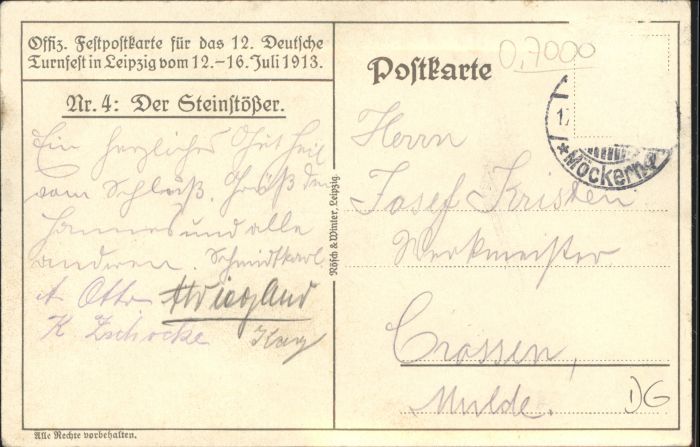 Offiz. Festpostkarte für das 12. Deutsche
Turnfest in Leipzig vom 12.–16. Juli 1913.
Nr. 4: Der Steinstößer.
Ein herzliches Gut Heil
vom Schluß. Grüß den
Hannes und alle
anderen. Schmidtkarl.
A Otto
K Zschocke
Alle Rechte vorbehalten.
Rösch & Winter, Leipzig.
Postkarte
0,7000
*Möckern
Herrn
Josef Kristen
Werkmeister
Crossen,
Mulde.
DG